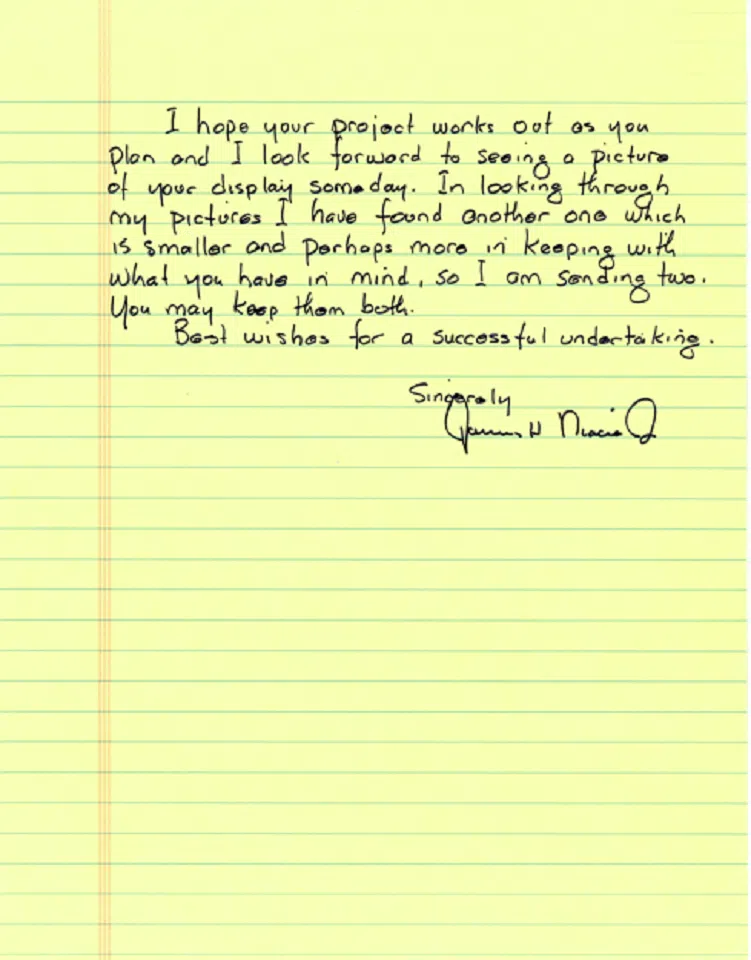 I hope your project works out as you
plan and I look forward to seeing a picture
of your display someday. In looking through
my pictures I have found another one which
is smaller and perhaps more in keeping with
what you have in mind, so I am sending two.
You may keep them both.
Best wishes for a successful undertaking.
Sincerely
James H